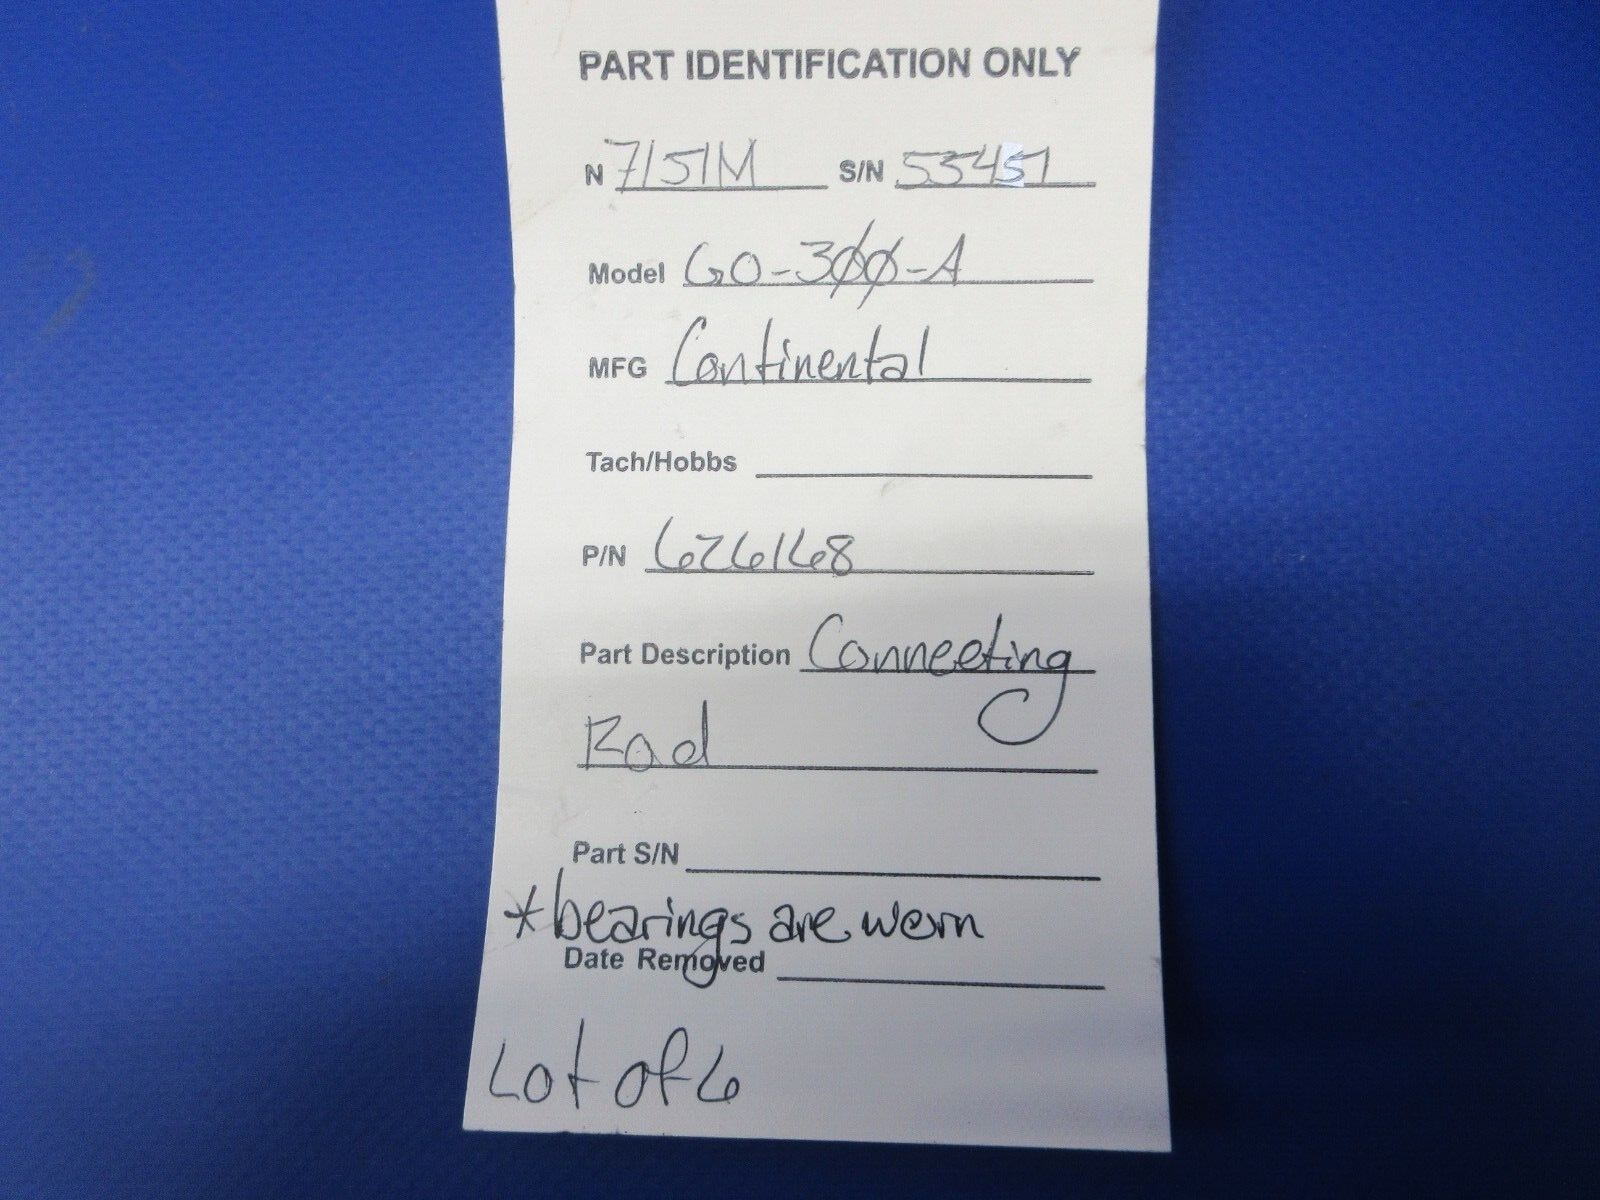 PART IDENTIFICATION ONLY
N 7151M S/N 53451
Model GO-300-A
MFG Continental
Tach/Hobbs
P/N 626168
Part Description Connecting
Rod
Part S/N
*bearings are worn
Date Removed
Lot of 6